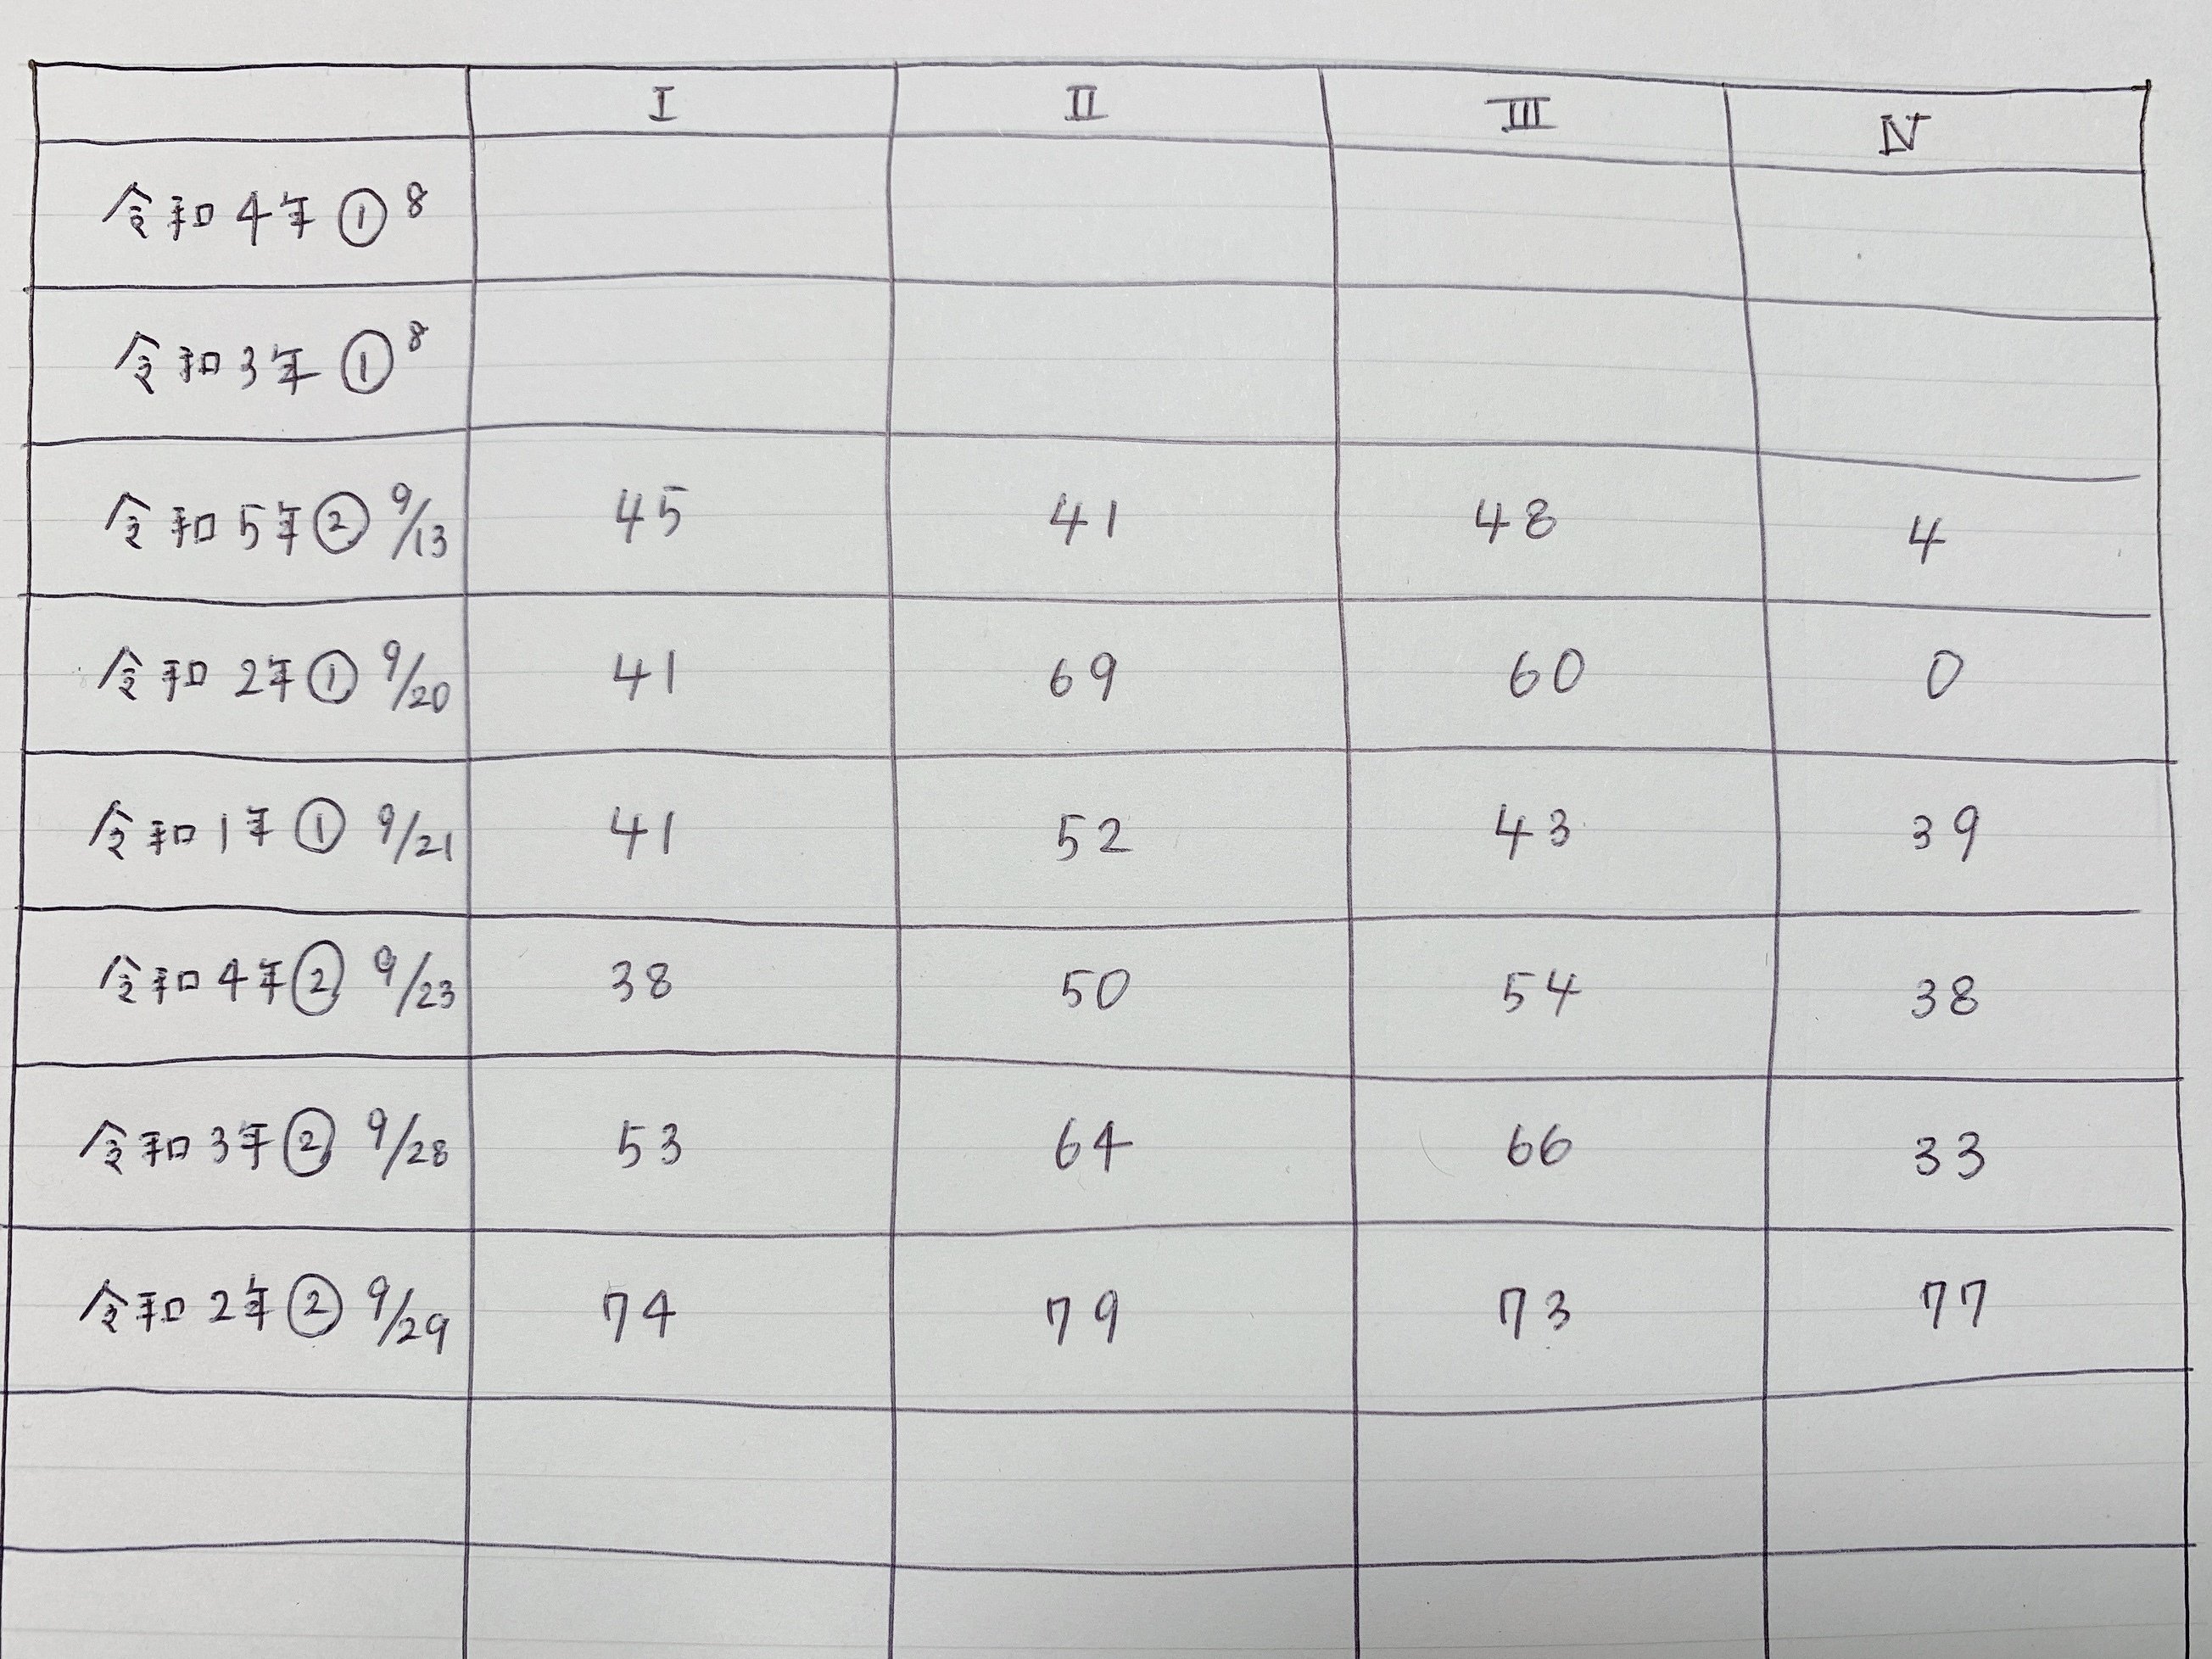 I II III IV
令和4年① 8
令和3年① 8
令和5年② 9/13 45 41 48 4
令和2年① 9/20 41 69 60 0
令和1年① 9/21 41 52 43 39
令和4年② 9/23 38 50 54 38
令和3年② 9/28 53 64 66 33
令和2年② 9/29 74 79 73 77